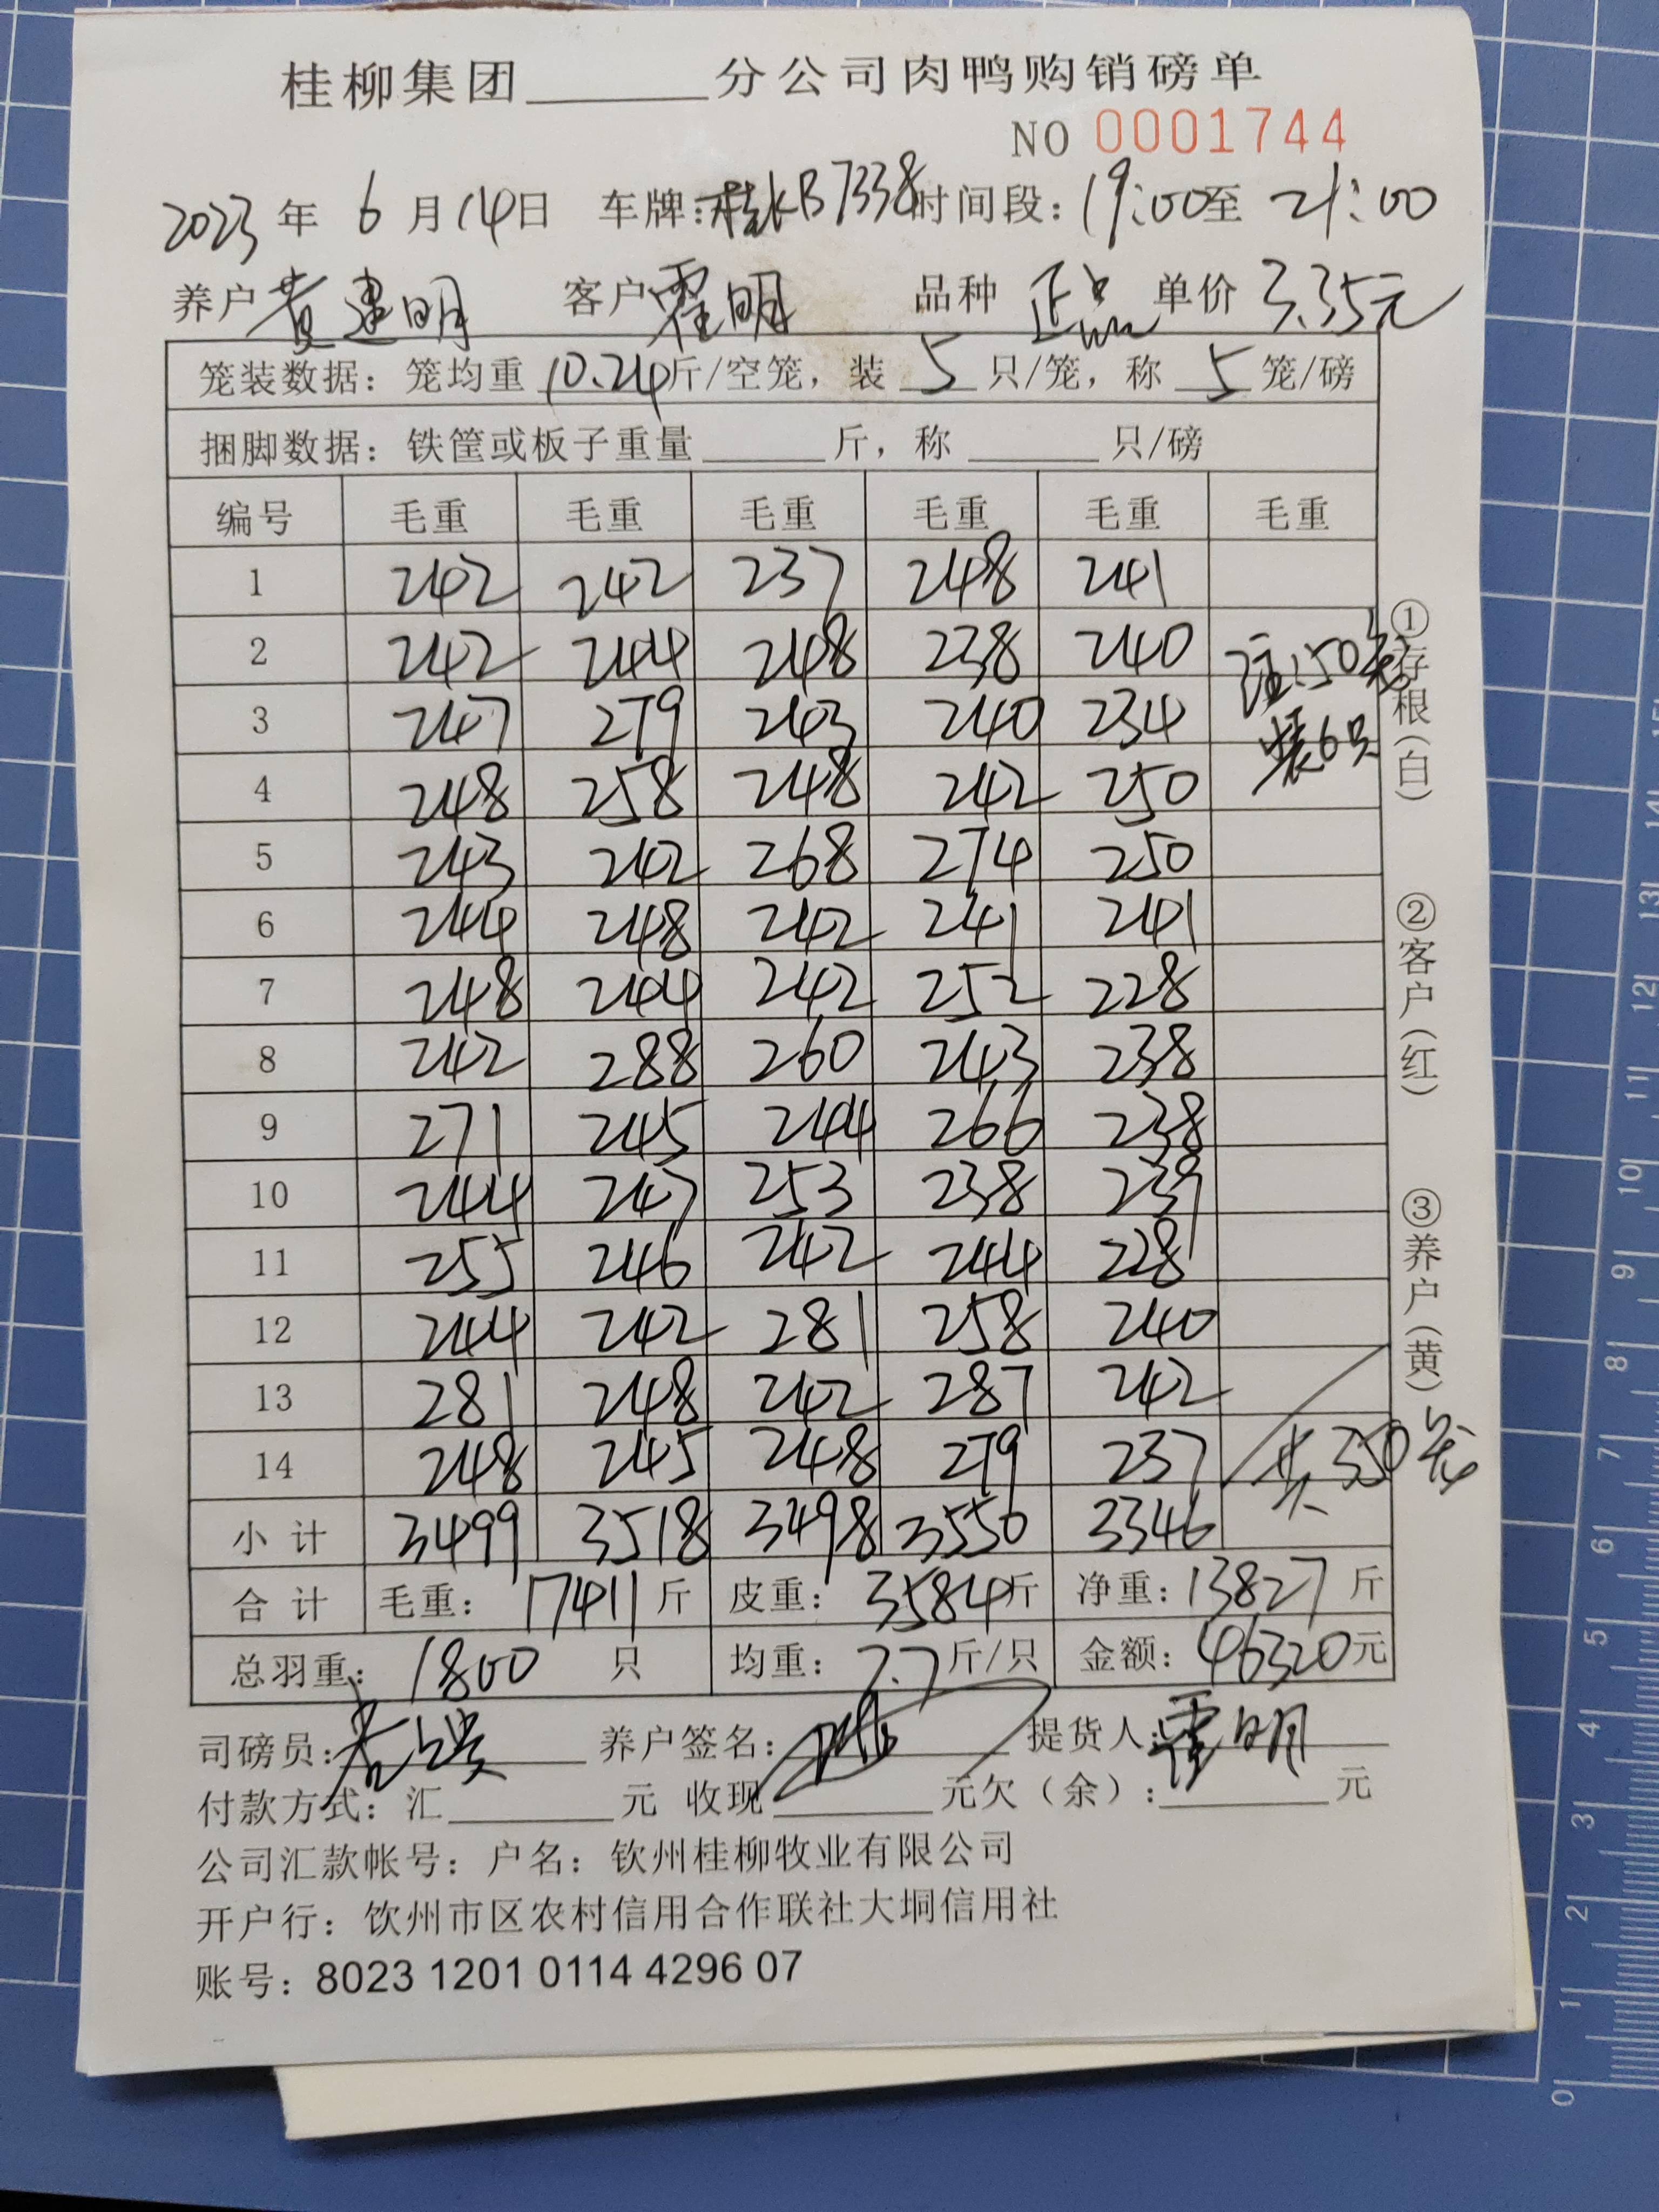 桂柳集团______分公司肉鸭购销磅单
NO 0001744
2023年 6月14日 车牌:桂KB7338 时间段:19:00至 21:00
养户 黄建明 客户 霍明 品种 正品 单价 3.35元
笼装数据:笼均重 10.24 斤/空笼,装 5 只/笼,称 5 笼/磅
捆脚数据:铁筐或板子重量______斤,称______只/磅
编号 毛重 毛重 毛重 毛重 毛重 毛重
1 242 242 237 248 241
2 242 244 248 238 240 注:50笼
3 247 279 243 240 234 装6只
4 248 258 248 242 250
5 243 242 268 274 250
6 244 248 242 241 241
7 248 244 242 252 228
8 242 288 260 243 238
9 271 245 244 266 238
10 244 247 253 238 239
11 255 246 242 244 228
12 244 242 281 258 240
13 281 248 242 287 242
14 248 245 248 279 237 共350笼
小计 3499 3518 3498 3550 3346
合计 毛重:17411斤 皮重:3584斤 净重:13827斤
总羽重:1800 只 均重:7.7斤/只 金额:46320元
司磅员: 养户签名: 提货人:霍明
付款方式:汇______元 收现______元欠(余):______元
公司汇款帐号:户名:钦州桂柳牧业有限公司
开户行:钦州市区农村信用合作联社大垌信用社
账号:8023 1201 0114 4296 07
①存根(白)
②客户(红)
③养户(黄)
0 1 2 3 4 5 6 7 8 9 10 11 12 13 14 15